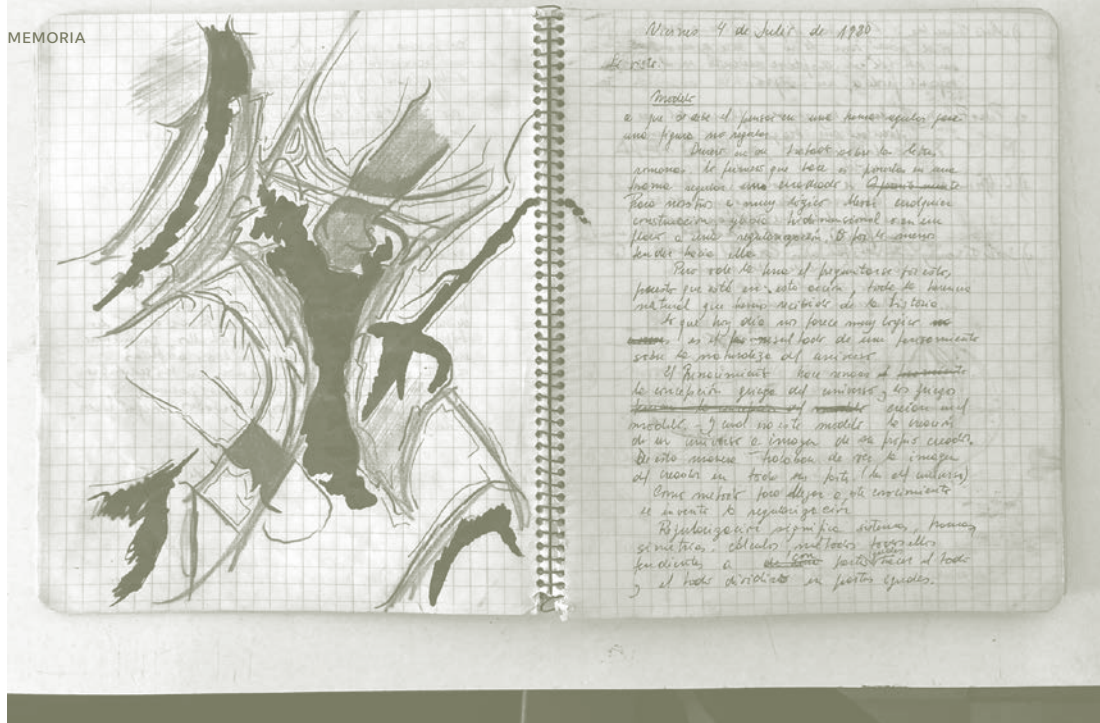 MEMORIA
Viernes 4 de Julio de 1980
Modelo
a que se debe el pensar en una forma regular para
una figura no regular
Durero en su tratado sobre las letras
romanas, lo primero que hace es ponerlas en una
forma regular una cuadrado.
Para nosotros es muy lógico llevar cualquier
construcción gráfica bidimensional o en un
plano a una regularización, o por lo menos
tender hacia ella.
Pero vale la pena el preguntarse por esto,
puesto que está en esta acción, toda la herencia
natural que hemos recibido de la historia.
Lo que hoy día nos parece muy lógico no
es el resultado de un pensamiento
sobre la naturaleza del universo
El Renacimiento hace renacer
la concepción griega del universo y los griegos
crearon un
modelo. Y cual es este modelo, la creación
de un universo a imagen de su propio creador.
De esta manera trataban de ver la imagen
del creador en todas sus partes (las del universo)
Como método para llegar a este conocimiento
se inventó la regularización
Regularización significa sistemas, tramas,
simetrías, cálculos, métodos
tendientes a con partes iguales hacer el todo
y el todo dividirlo en partes iguales.